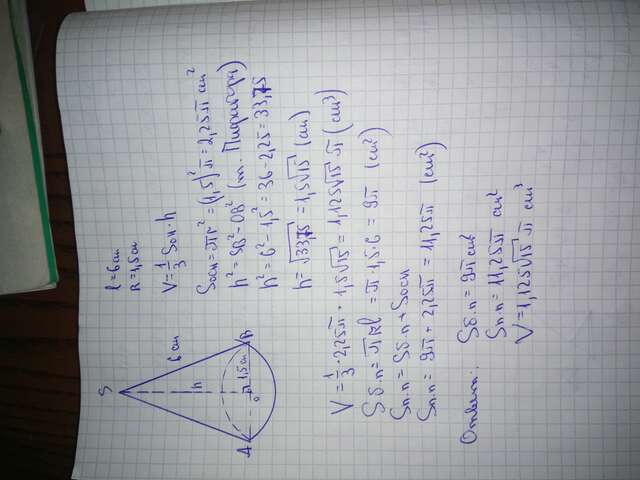 l = 6 см
R = 1,5 см
V = 1/3 Sосн · h
Sосн = πr² = (1,5)²π = 2,25π см²
h² = SB² - OB² (т. Пифагора)
h² = 6² - 1,5² = 36 - 2,25 = 33,75
h = √33,75 = 1,5√15 (см)
V = 1/3 · 2,25π · 1,5√15 = 1,125√15 π (см³)
Sб.п = πRl = π · 1,5 · 6 = 9π (см²)
Sп.п = Sб.п + Sосн
Sп.п = 9π + 2,25π = 11,25π (см²)
Ответ: Sб.п = 9π см²
Sп.п = 11,25π см²
V = 1,125√15 π см³
S
6 см
h
A
O
1,5 см
B